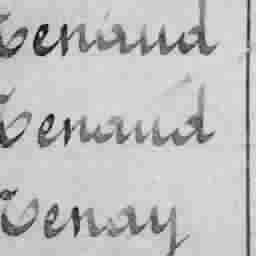 Renaud
Renaud
Renay